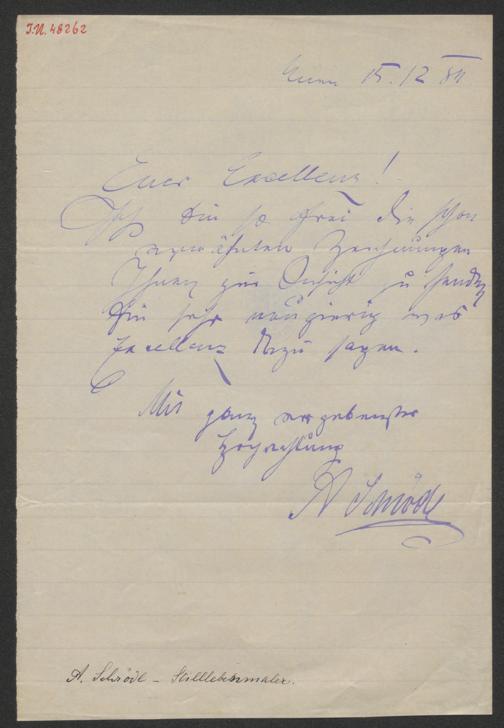 I.N. 48262
Wien 15.12 80
Euer Excellenz!
Ich bin so frei die schon
erwähnten Zeichnungen
Ihnen zur Ansicht zu senden
bin sehr neugierig was
Excellenz dazu sagen.
Mit ganz ergebenster
Hochachtung
A Schrödl
A. Schrödl - Stilllebenmaler.